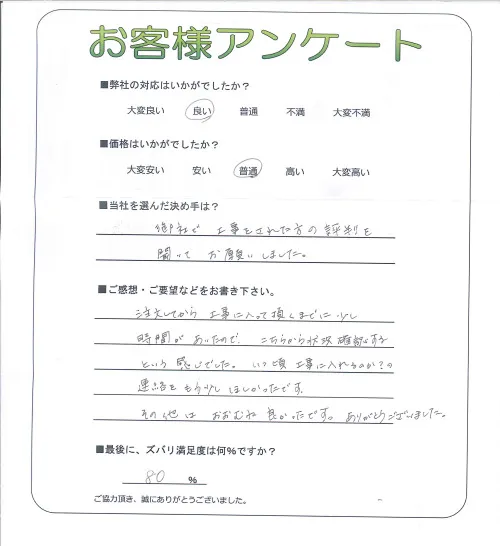 お客様アンケート
■弊社の対応はいかがでしたか？
大変良い 良い 普通 不満 大変不満
■価格はいかがでしたか？
大変安い 安い 普通 高い 大変高い
■当社を選んだ決め手は？
御社で 工事をされた方の 評判を
聞いて お願いしました。
■ご感想・ご要望などをお書き下さい。
注文してから 工事に入って頂くまでに 少し
時間があいたので、こちらから状況確認する
という 感じでした。いつ頃 工事に入れるのか？の
連絡を もう少し ほしかったです。
その他は おおむね 良かったです。ありがとうございました。
■最後に、ズバリ満足度は何％ですか？
80 ％
ご協力頂き、誠にありがとうございました。